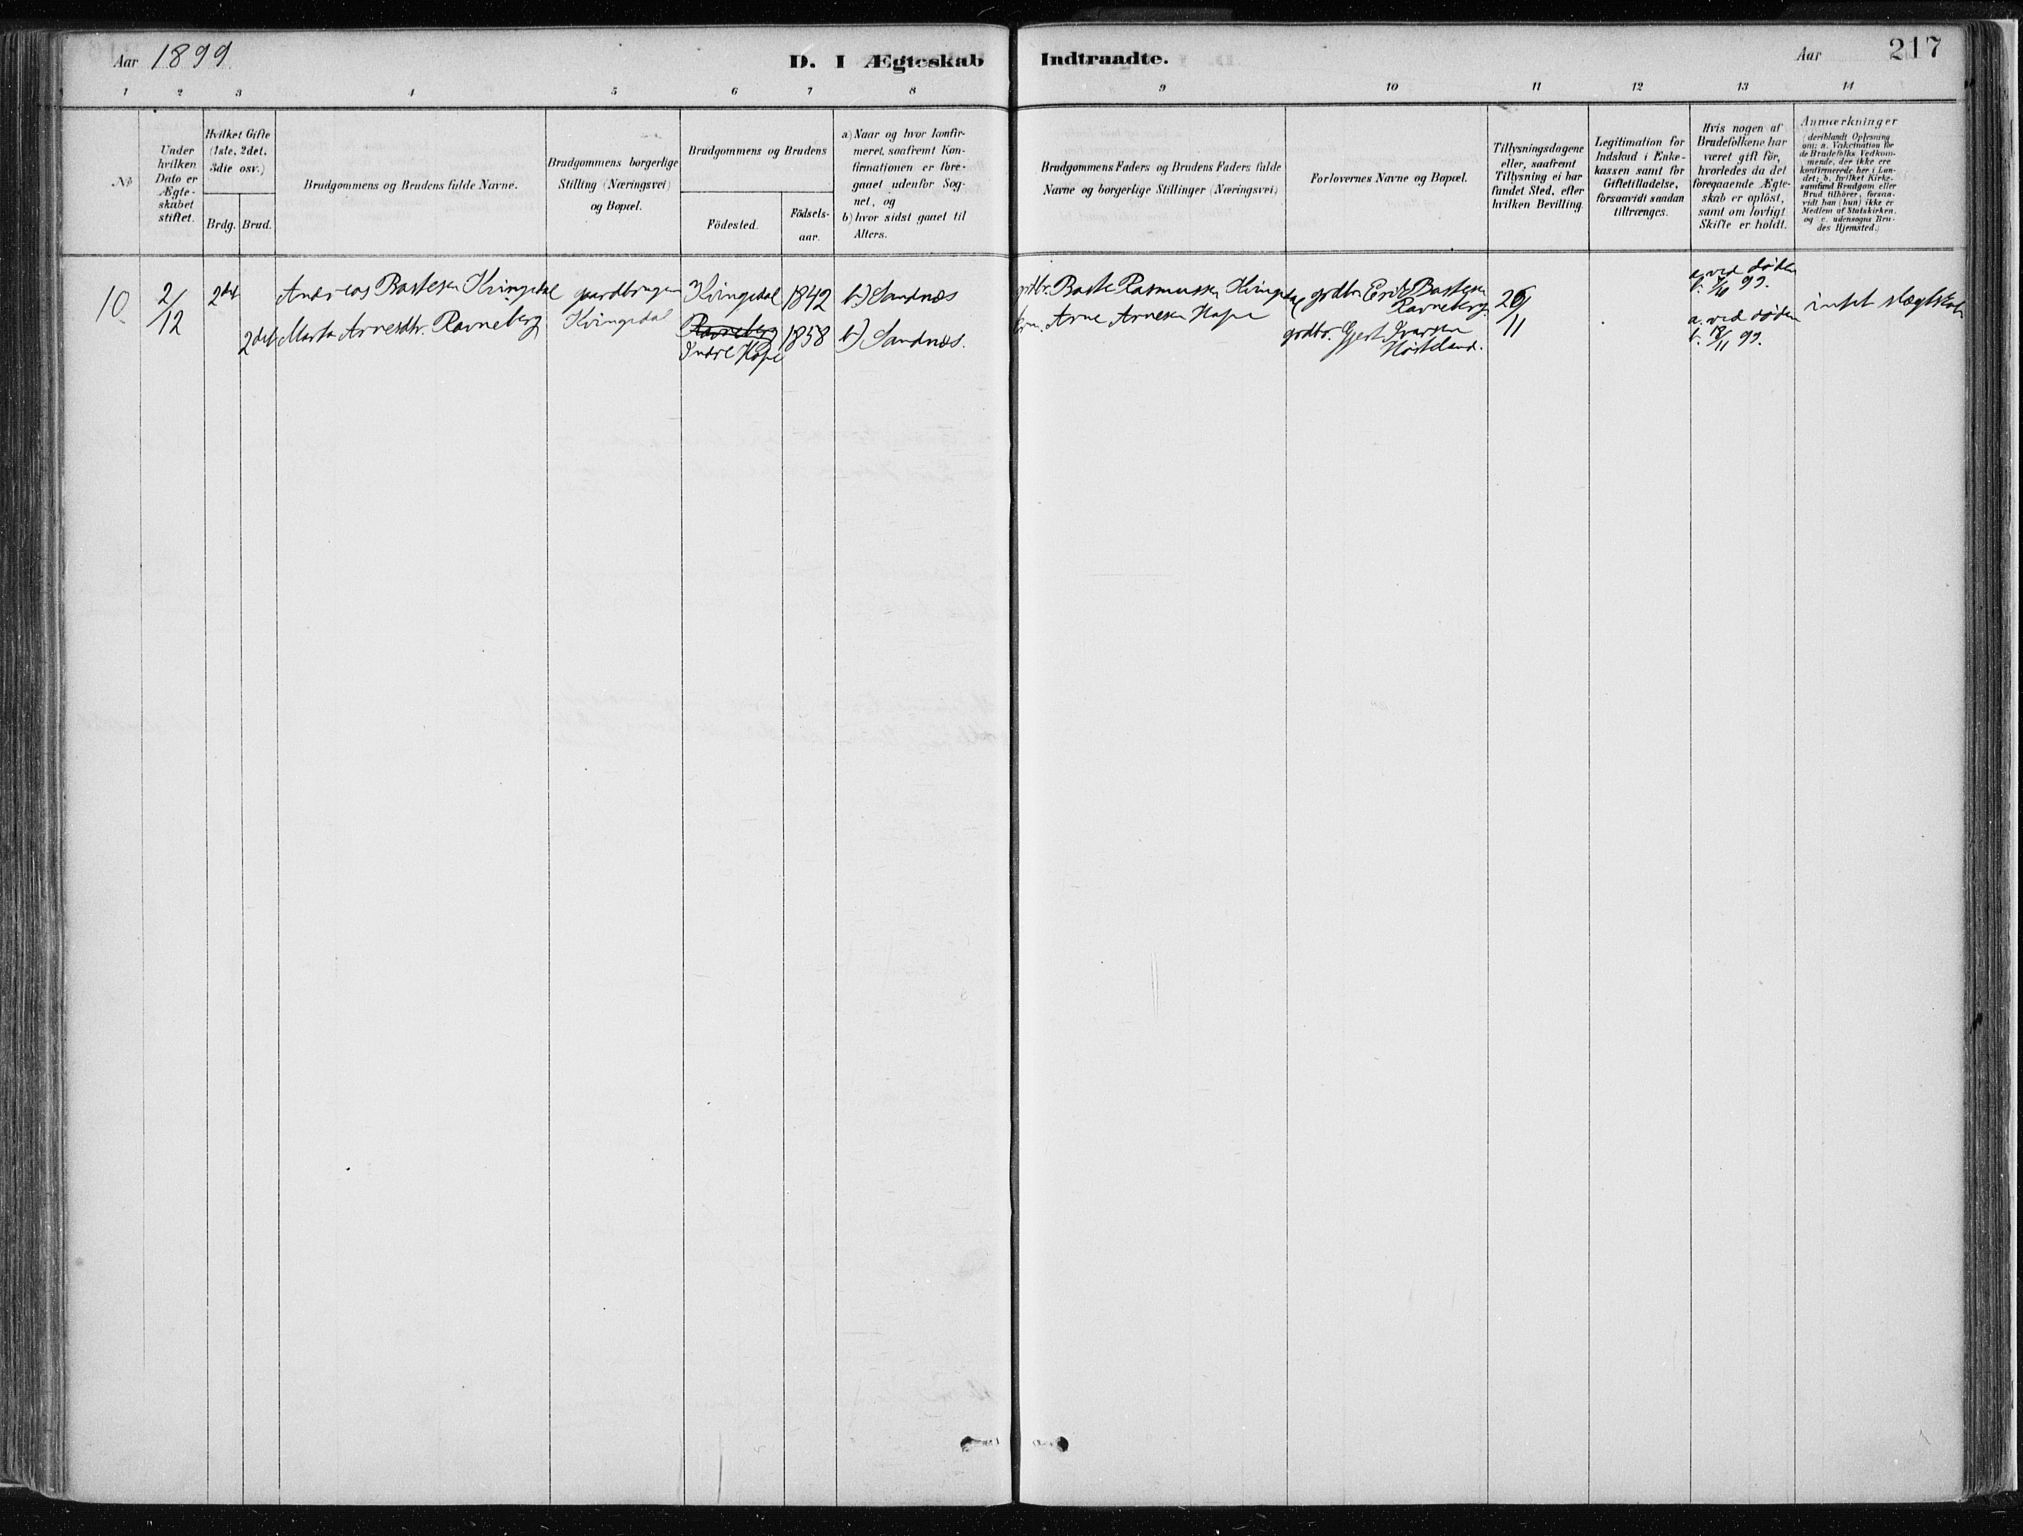 Aar 1899
D. I Ægteskab Indtraadte.
Aar 217
1 2 3 4 5 6 7 8 9 10 11 12 13 14
No
Under hvilken Dato er Ægte-skabet stiftet.
Hvilket Gifte (1ste, 2det, 3die osv.)
Brdg. Brud.
Brudgommens og Brudens fulde Navne.
Brudgommens borgerlige Stilling (Næringsvei) og Bopæl.
Brudgommens og Brudens
Födested. Födsels-aar.
a) Naar og hvor konfir-meret, saafremt Kon-firmationen er fore-gaaet udenfor Sog-net, og
b) hvor sidst gaaet til Alters.
Brudgommens Faders og Brudens Faders fulde Navne og borgerlige Stillinger (Næringsvei)
Forlovernes Navne og Bopæl.
Tillysningsdagene eller, saafremt Tillysning ei har fundet Sted, efter hvilken Bevilling.
Legitimation for Indskud i Enke-kassen samt for Giftetilladelse, forsaavidt saadan tiltrænges.
Hvis nogen af Brudefolkene har været gift för, hvorledes da det foregaaende Ægte-skab er oplöst, samt om lovligt Skifte er holdt.
Anmærkninger
(deriblandt Oplysning om: a. Vakcination for de Brudefolks Vedkom-mende, der ikke ere konfirmerede her i Lan-det; b. hvilket Kirke-samfund Brudgom eller Brud tilhörer, forsaa-vidt han (hun) ikke er Medlem af Statskirken, og c. udensogns Bru-des Hjemsted.)
10. 2/12 2det Andreas Bastesen Kvingedal gaardbruger Kvingedal 1842 b.) Sandnæs grdbr. Baste Rasmussen Kvingedal grdbr. Erik Bastesen Ravneberg 26/11 a. ved døden b. /11 99. intet slægtskab
2det Marta Arnesdtr. Ravneberg Kvingedal Ravneberg Indre Hope 1858 b.) Sandnæs. Arne Arnesen Hope grdbr. Gjert Ivarsen Høsteland. a. ved døden b. 18/11 99.